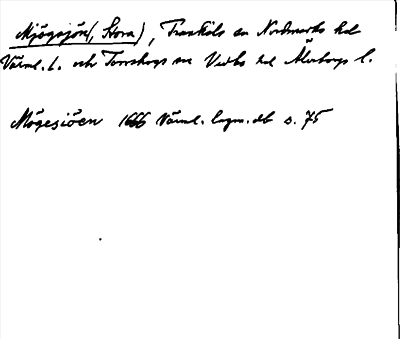 Mjögsjön(, Stora), Trankils sn Nordmarks hd
Värml. l. och Torrskogs sn Vedbo hd Älvsborgs l.
Mögesiöen 1666 Värml. lagm.db s. 75